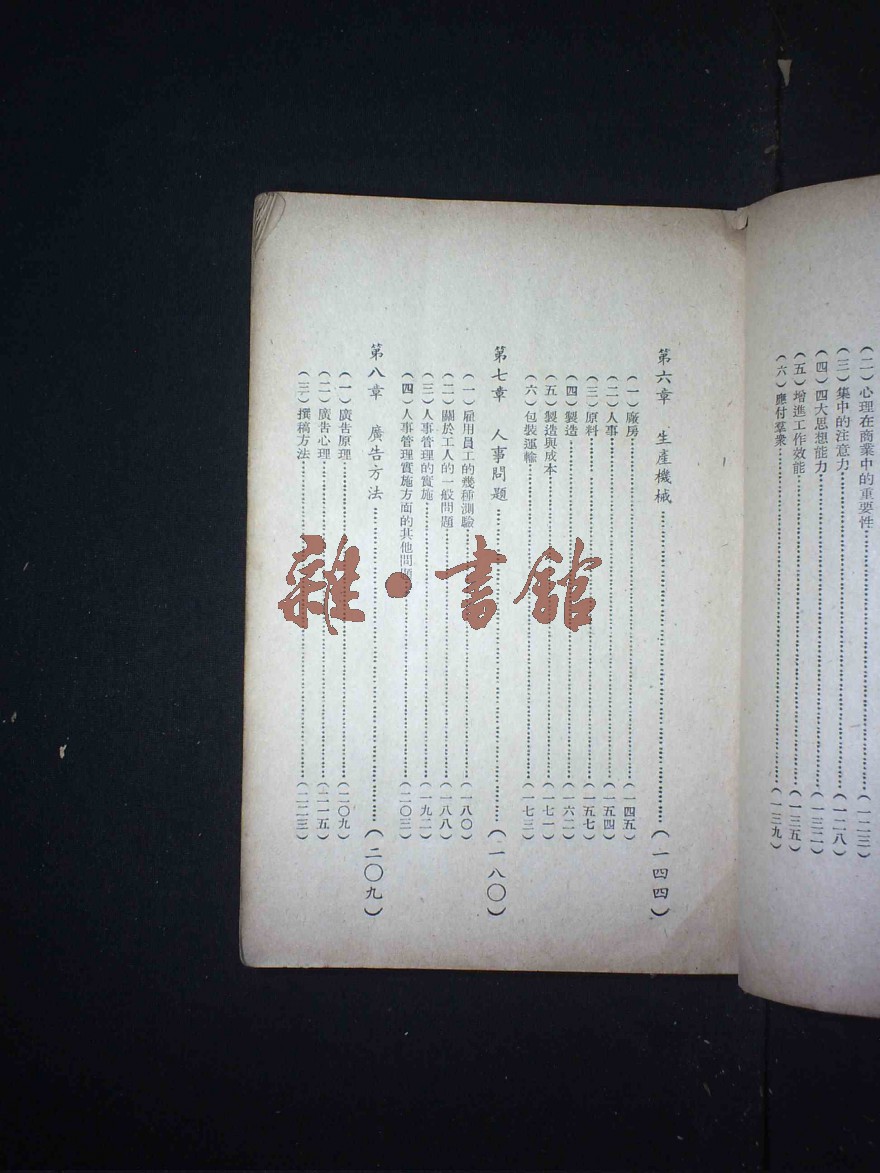 (二)心理在商業中的重要性……(一二三)
(三)集中的注意力……(一二八)
(四)四大思想能力……(一三二)
(五)增進工作效能……(一三五)
(六)應付羣衆……(一三九)
第六章 生產機械……(一四四)
(一)廠房……(一四五)
(二)人事……(一五四)
(三)原料……(一五七)
(四)製造……(一六二)
(五)製造與成本……(一七一)
(六)包裝運輸……(一七三)
第七章 人事問題……(一八〇)
(一)雇用員工的幾種測驗……(一八〇)
(二)關於工人的一般問題……(一八八)
(三)人事管理的實施……(一九二)
(四)人事管理實施方面的其他問題……(二〇三)
第八章 廣告方法……(二〇九)
(一)廣告原理……(二〇九)
(二)廣告心理……(二一五)
(三)撰稿方法……(二二三)
雜·書館